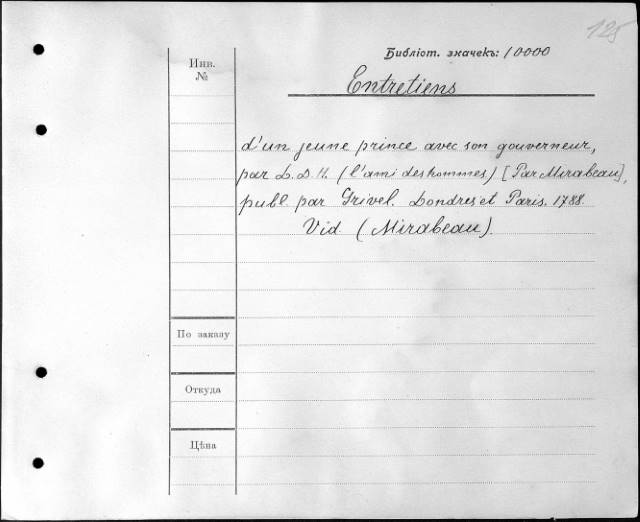 125
Библіот. значекъ: 10000
Инв.
№
Entretiens
d'un jeune prince avec son gouverneur,
par L. D. H. (l'ami des hommes) [Par Mirabeau],
publ. par Grivel. Londres et Paris. 1788.
Vid. (Mirabeau).
По заказу
Откуда
Цѣна